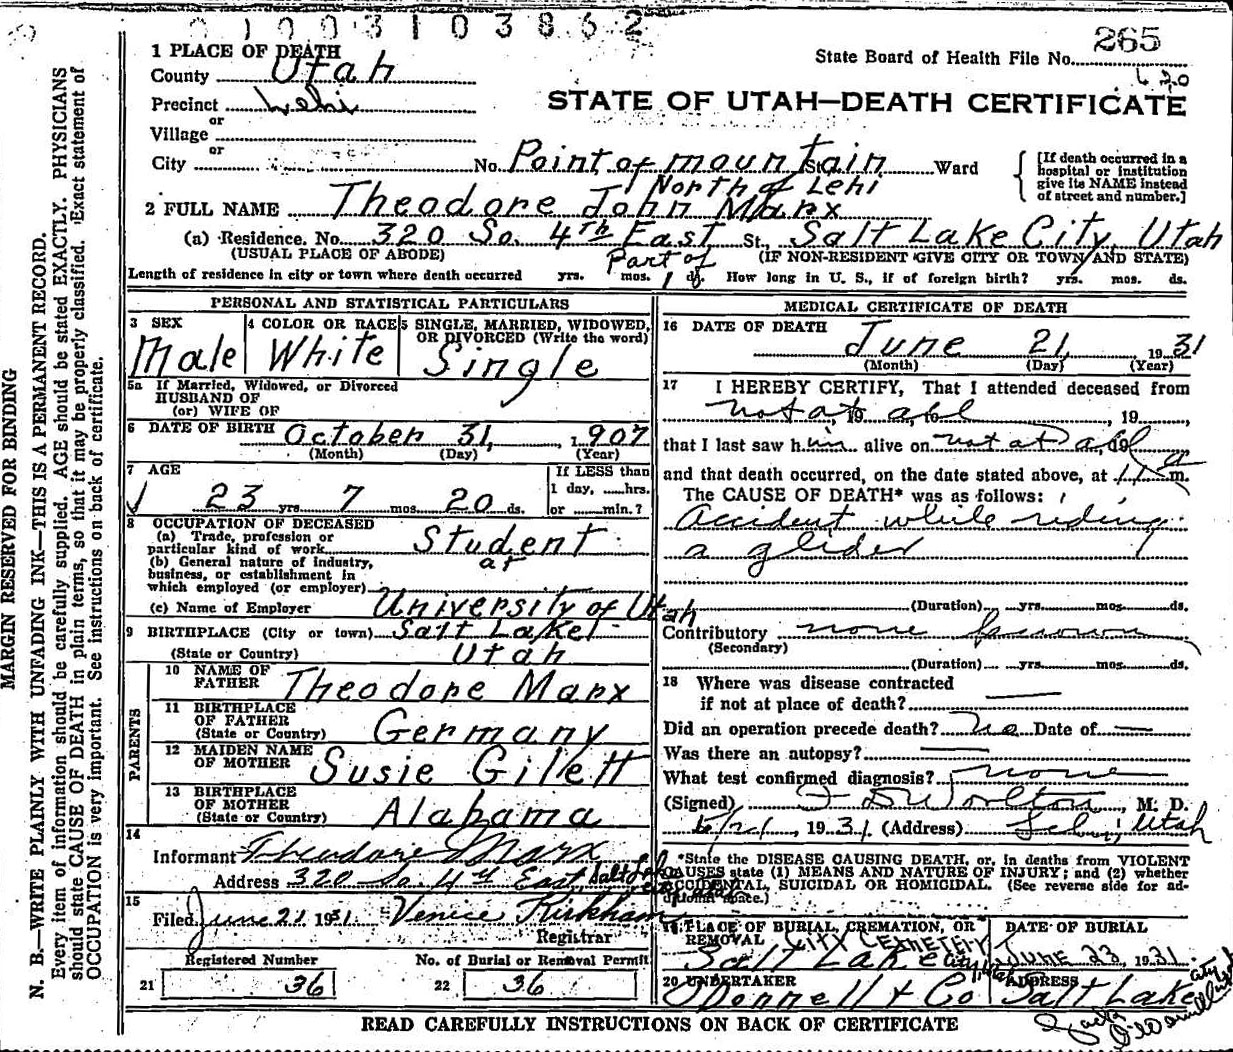 01003103862
265
State Board of Health File No.
STATE OF UTAH—DEATH CERTIFICATE
1 PLACE OF DEATH
County Utah
Precinct Lehi
or
Village
or
City No. Point of mountain St. Ward
North of Lehi
[If death occurred in a
hospital or institution
give its NAME instead
of street and number.]
2 FULL NAME Theodore John Marx
(a) Residence. No. 320 So. 4th East St., Salt Lake City, Utah
(USUAL PLACE OF ABODE) (IF NON-RESIDENT GIVE CITY OR TOWN AND STATE)
Length of residence in city or town where death occurred yrs. mos. Part of 1 ds. How long in U. S., if of foreign birth? yrs. mos. ds.
PERSONAL AND STATISTICAL PARTICULARS
3 SEX Male
4 COLOR OR RACE White
5 SINGLE, MARRIED, WIDOWED,
OR DIVORCED (Write the word)
Single
5a If Married, Widowed, or Divorced
HUSBAND OF
(or) WIFE OF
6 DATE OF BIRTH October 31, 1907
(Month) (Day) (Year)
7 AGE
23 yrs 7 mos 20 ds.
If LESS than
1 day, hrs.
or min.?
8 OCCUPATION OF DECEASED
(a) Trade, profession or
particular kind of work Student
(b) General nature of industry, at
business, or establishment in
which employed (or employer)
(c) Name of Employer University of Utah
9 BIRTHPLACE (City or town) Salt Lake
(State or Country) Utah
PARENTS
10 NAME OF
FATHER Theodore Marx
11 BIRTHPLACE
OF FATHER
(State or Country) Germany
12 MAIDEN NAME
OF MOTHER Susie Gilett
13 BIRTHPLACE
OF MOTHER
(State or Country) Alabama
14
Informant Theodore Marx
Address 320 So. 4th East, Salt Lake
15
Filed June 21 1931 Venice Kirkham
Registrar
Registered Number
21 36
No. of Burial or Removal Permit
22 36
MEDICAL CERTIFICATE OF DEATH
16 DATE OF DEATH June 21, 1931
(Month) (Day) (Year)
17 I HEREBY CERTIFY, That I attended deceased from
not at all, 19 , to , 19 ,
that I last saw him alive on not at all, 19
and that death occurred, on the date stated above, at 11 a m.
The CAUSE OF DEATH* was as follows:
Accident while riding
a glider
(Duration) yrs. mos. ds.
Contributory none known
(Secondary)
(Duration) yrs. mos. ds.
18 Where was disease contracted
if not at place of death?
Did an operation precede death? No Date of —
Was there an autopsy? —
What test confirmed diagnosis? none
(Signed) , M. D.
6/21, 1931 (Address) Lehi, Utah
*State the DISEASE CAUSING DEATH, or, in deaths from VIOLENT
CAUSES state (1) MEANS AND NATURE OF INJURY; and (2) whether
ACCIDENTAL, SUICIDAL OR HOMICIDAL. (See reverse side for ad-
ditional space.)
19 PLACE OF BURIAL, CREMATION, OR
REMOVAL CITY CEMETERY
Salt Lake City, Utah
DATE OF BURIAL
JUNE 23, 1931.
20 UNDERTAKER
O'Donnell & Co
ADDRESS
Salt Lake City
READ CAREFULLY INSTRUCTIONS ON BACK OF CERTIFICATE
MARGIN RESERVED FOR BINDING
N. B.—WRITE PLAINLY WITH UNFADING INK—THIS IS A PERMANENT RECORD.
Every item of information should be carefully supplied. AGE should be stated EXACTLY. PHYSICIANS
should state CAUSE OF DEATH in plain terms, so that it may be properly classified. Exact statement of
OCCUPATION is very important. See instructions on back of certificate.